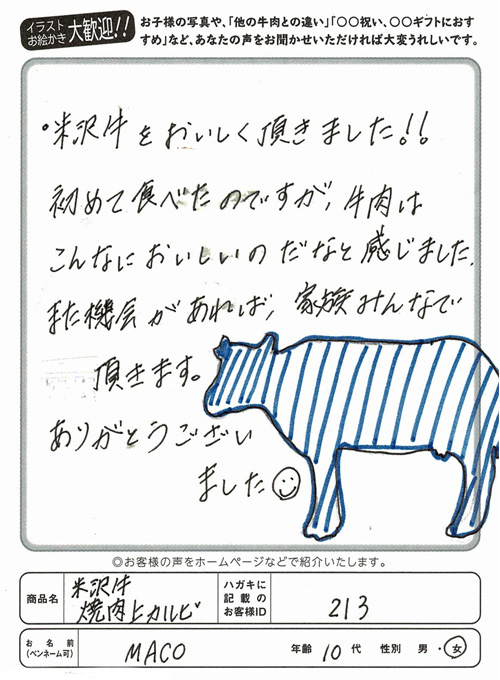 イラスト
お絵かき 大歓迎!!
お子様の写真や、「他の牛肉との違い」「〇〇祝い、〇〇ギフトにおす
すめ」など、あなたの声をお聞かせいただければ大変うれしいです。
・米沢牛をおいしく頂きました!!
初めて食べたのですが、牛肉は
こんなにおいしいのだなと感じました。
また機会があれば、家族みんなで
頂きます。
ありがとうござい
ました
◎お客様の声をホームページなどで紹介いたします。
商品名 米沢牛
焼肉上カルビ
ハガキに
記載の
お客様ID 213
お名前
(ペンネーム可) MACO 年齢 10代 性別 男・女